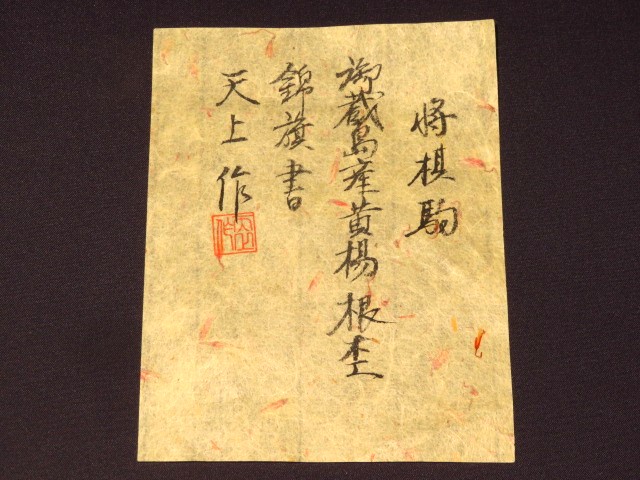 将棋駒
御蔵島産黄楊根杢
錦旗書
天上作